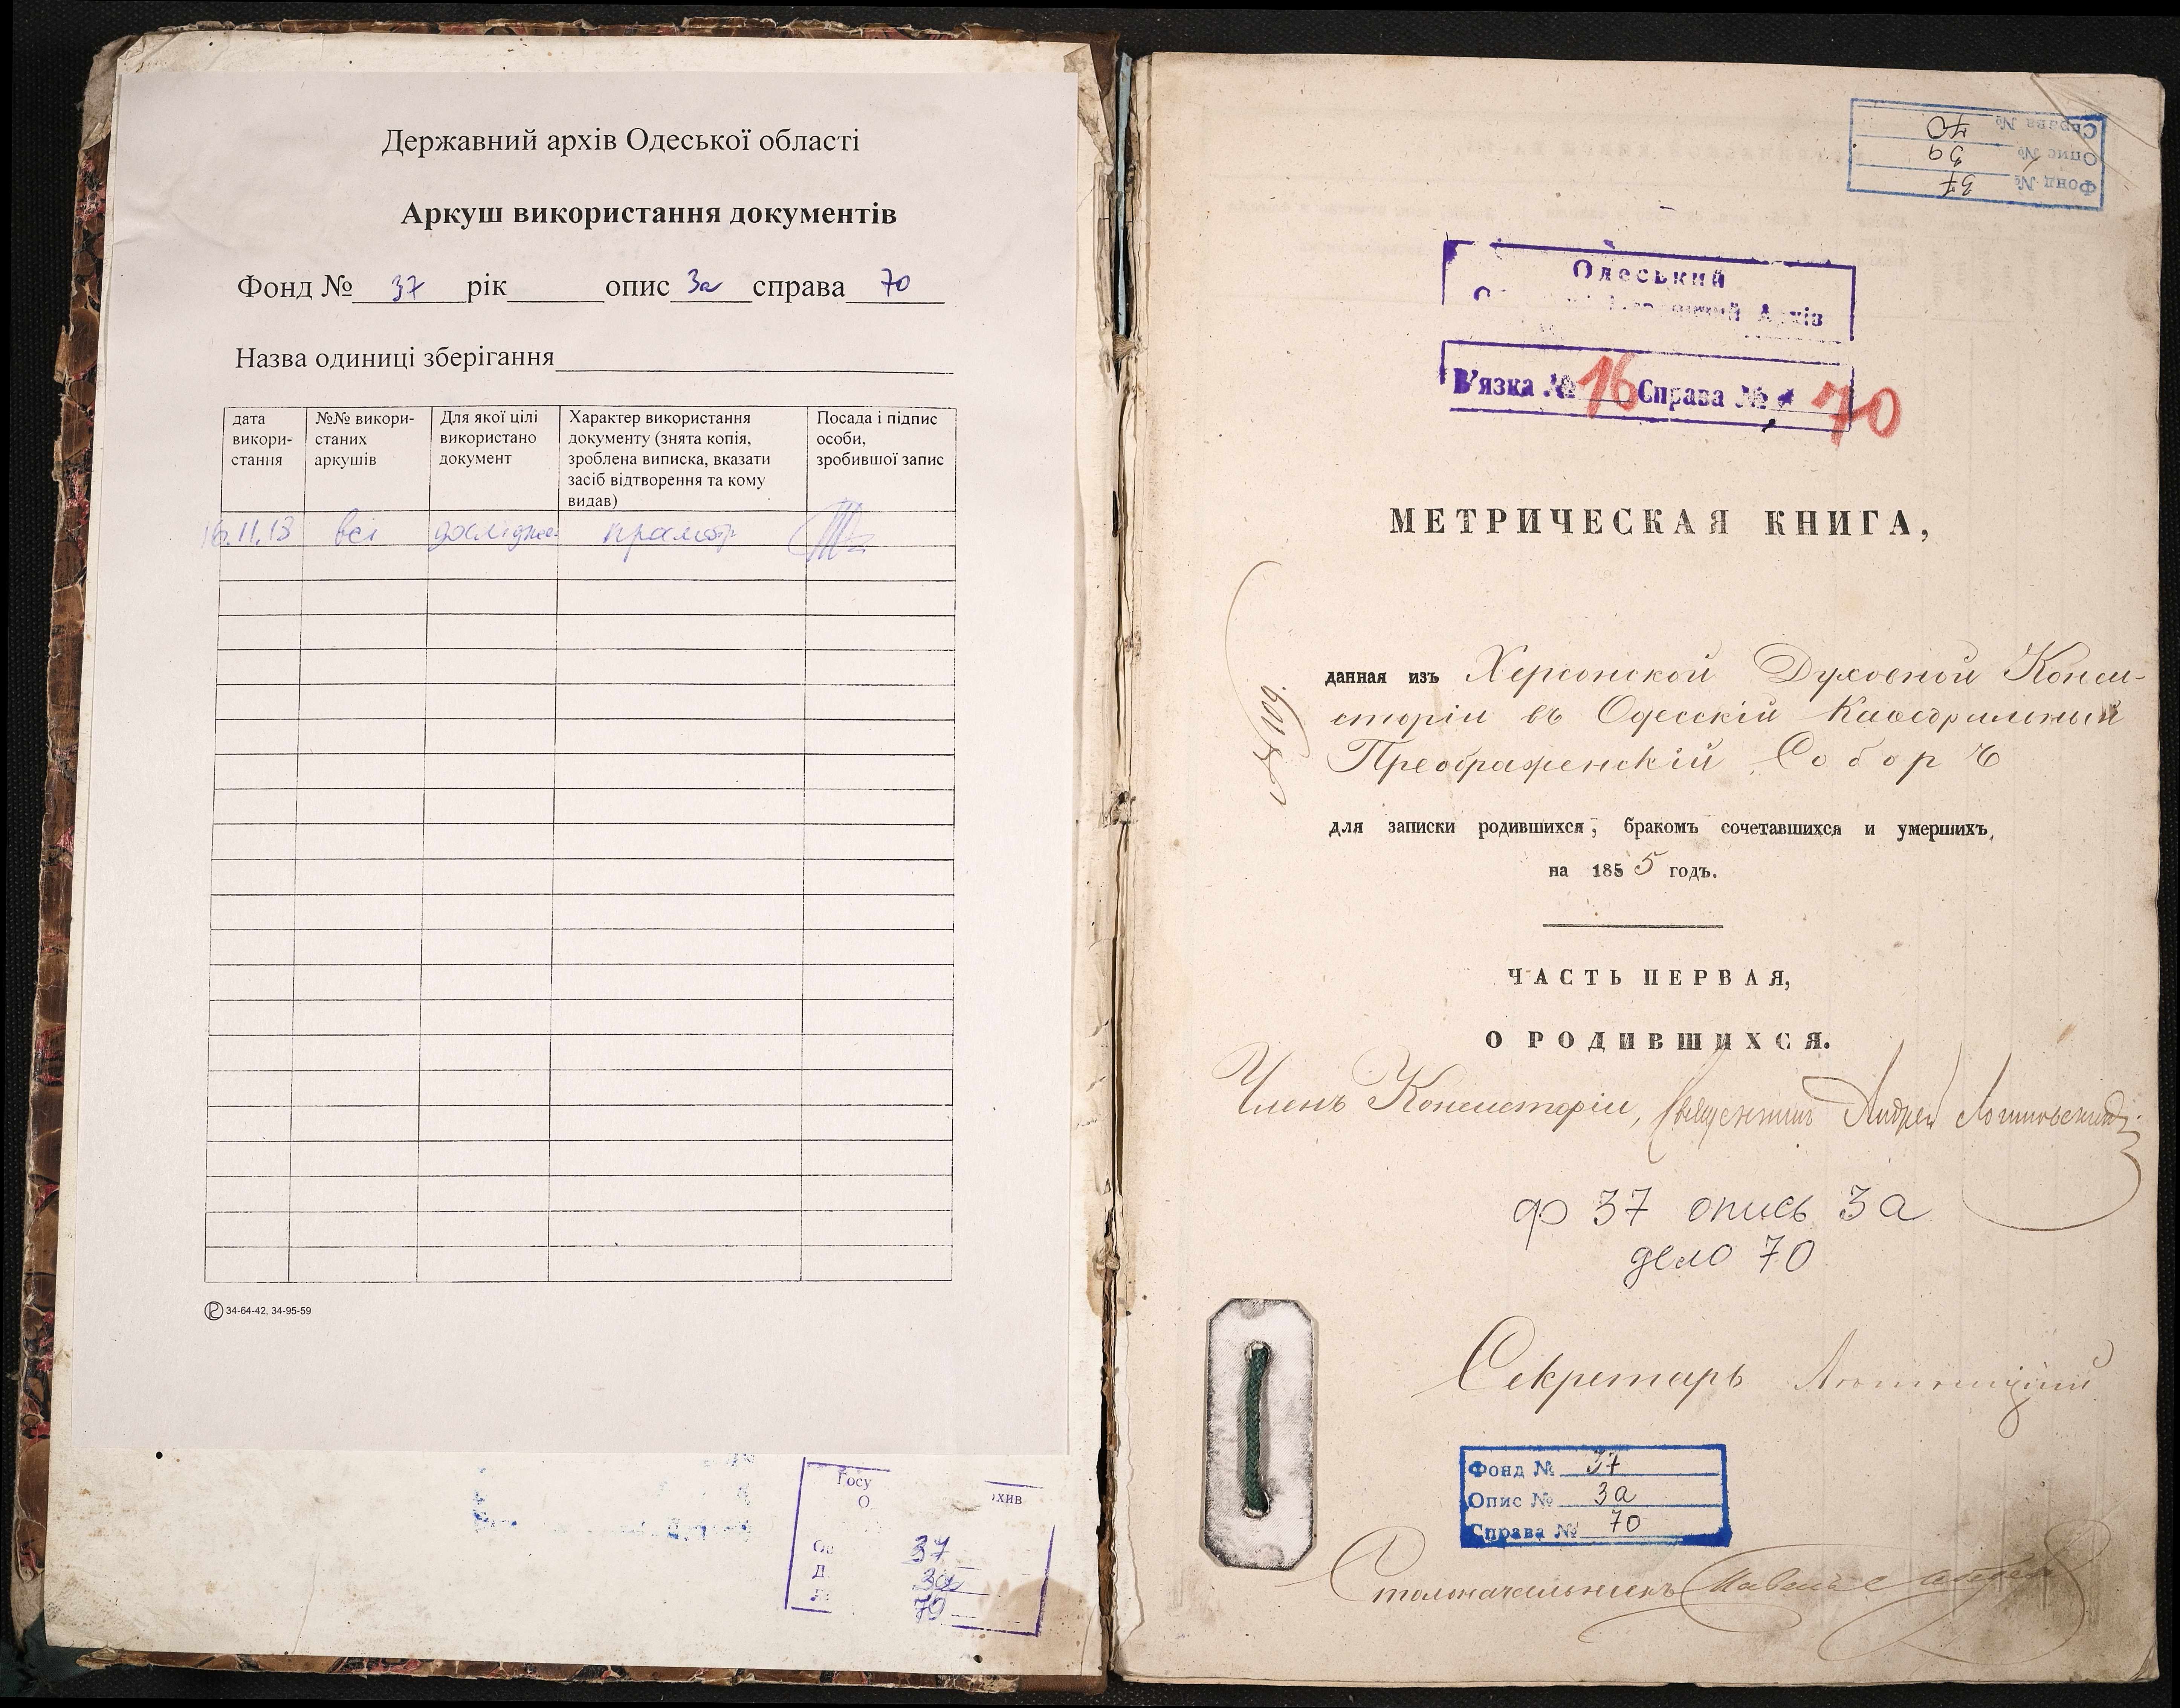 Державний архів Одеської області
Аркуш використання документів
Фонд № 37 рік опис 3а справа 70
Назва одиниці зберігання
дата викори-стання
№№ викори-станих аркушів
Для якої цілі використано документ
Характер використання документу (знята копія, зроблена виписка, вказати засіб відтворення та кому видав)
Посада і підпис особи, зробившої запис
16.11.13 всі
34-64-42, 34-95-59
37
3а
70
Фонд № 37
Опис № 3а
Справа № 70
Одеський
Архів
В'язка № 16 Справа № 70
МЕТРИЧЕСКАЯ КНИГА,
№ 109.
данная изъ Херсонской Духовной Конси-
сторіи въ Одесскій Каѳедральный
Преображенскій Соборъ
для записки родившихся, бракомъ сочетавшихся и умершихъ,
на 1855 годъ.
ЧАСТЬ ПЕРВАЯ,
О РОДИВШИХСЯ.
Членъ Консисторіи, Священникъ Андрей
ф 37 опись 3а
дело 70
Секретарь
Фонд № 37
Опис № 3а
Справа № 70
Столоначальникъ